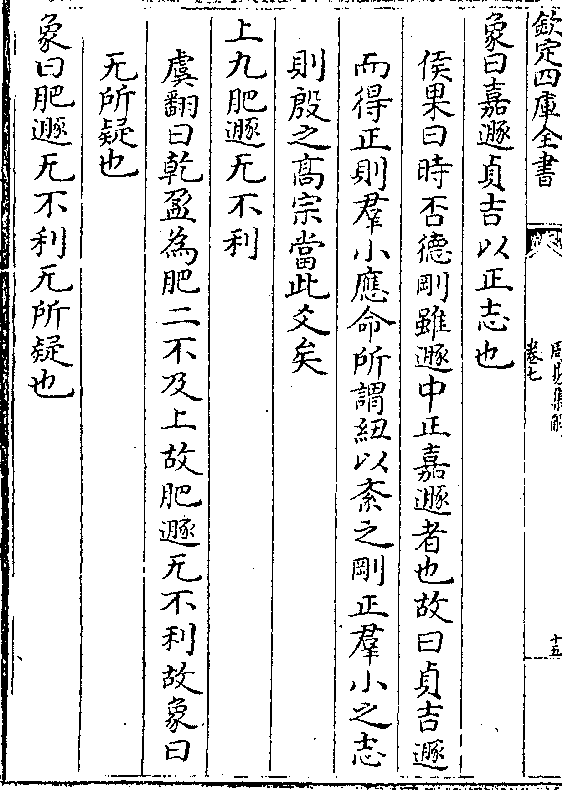 欽定四庫全書
周易集解
卷七
十五
象曰嘉遯貞吉以正志也
侯果曰時否德剛雖遯中正嘉遯者也故曰貞吉遯
而得正則羣小應命所謂紐以紊之剛正羣小之志
則殷之髙宗當此爻矣
上九肥遯无不利
虞翻曰乾盈為肥二不及上故肥遯无不利故象曰
无所疑也
象曰肥遯无不利无所疑也